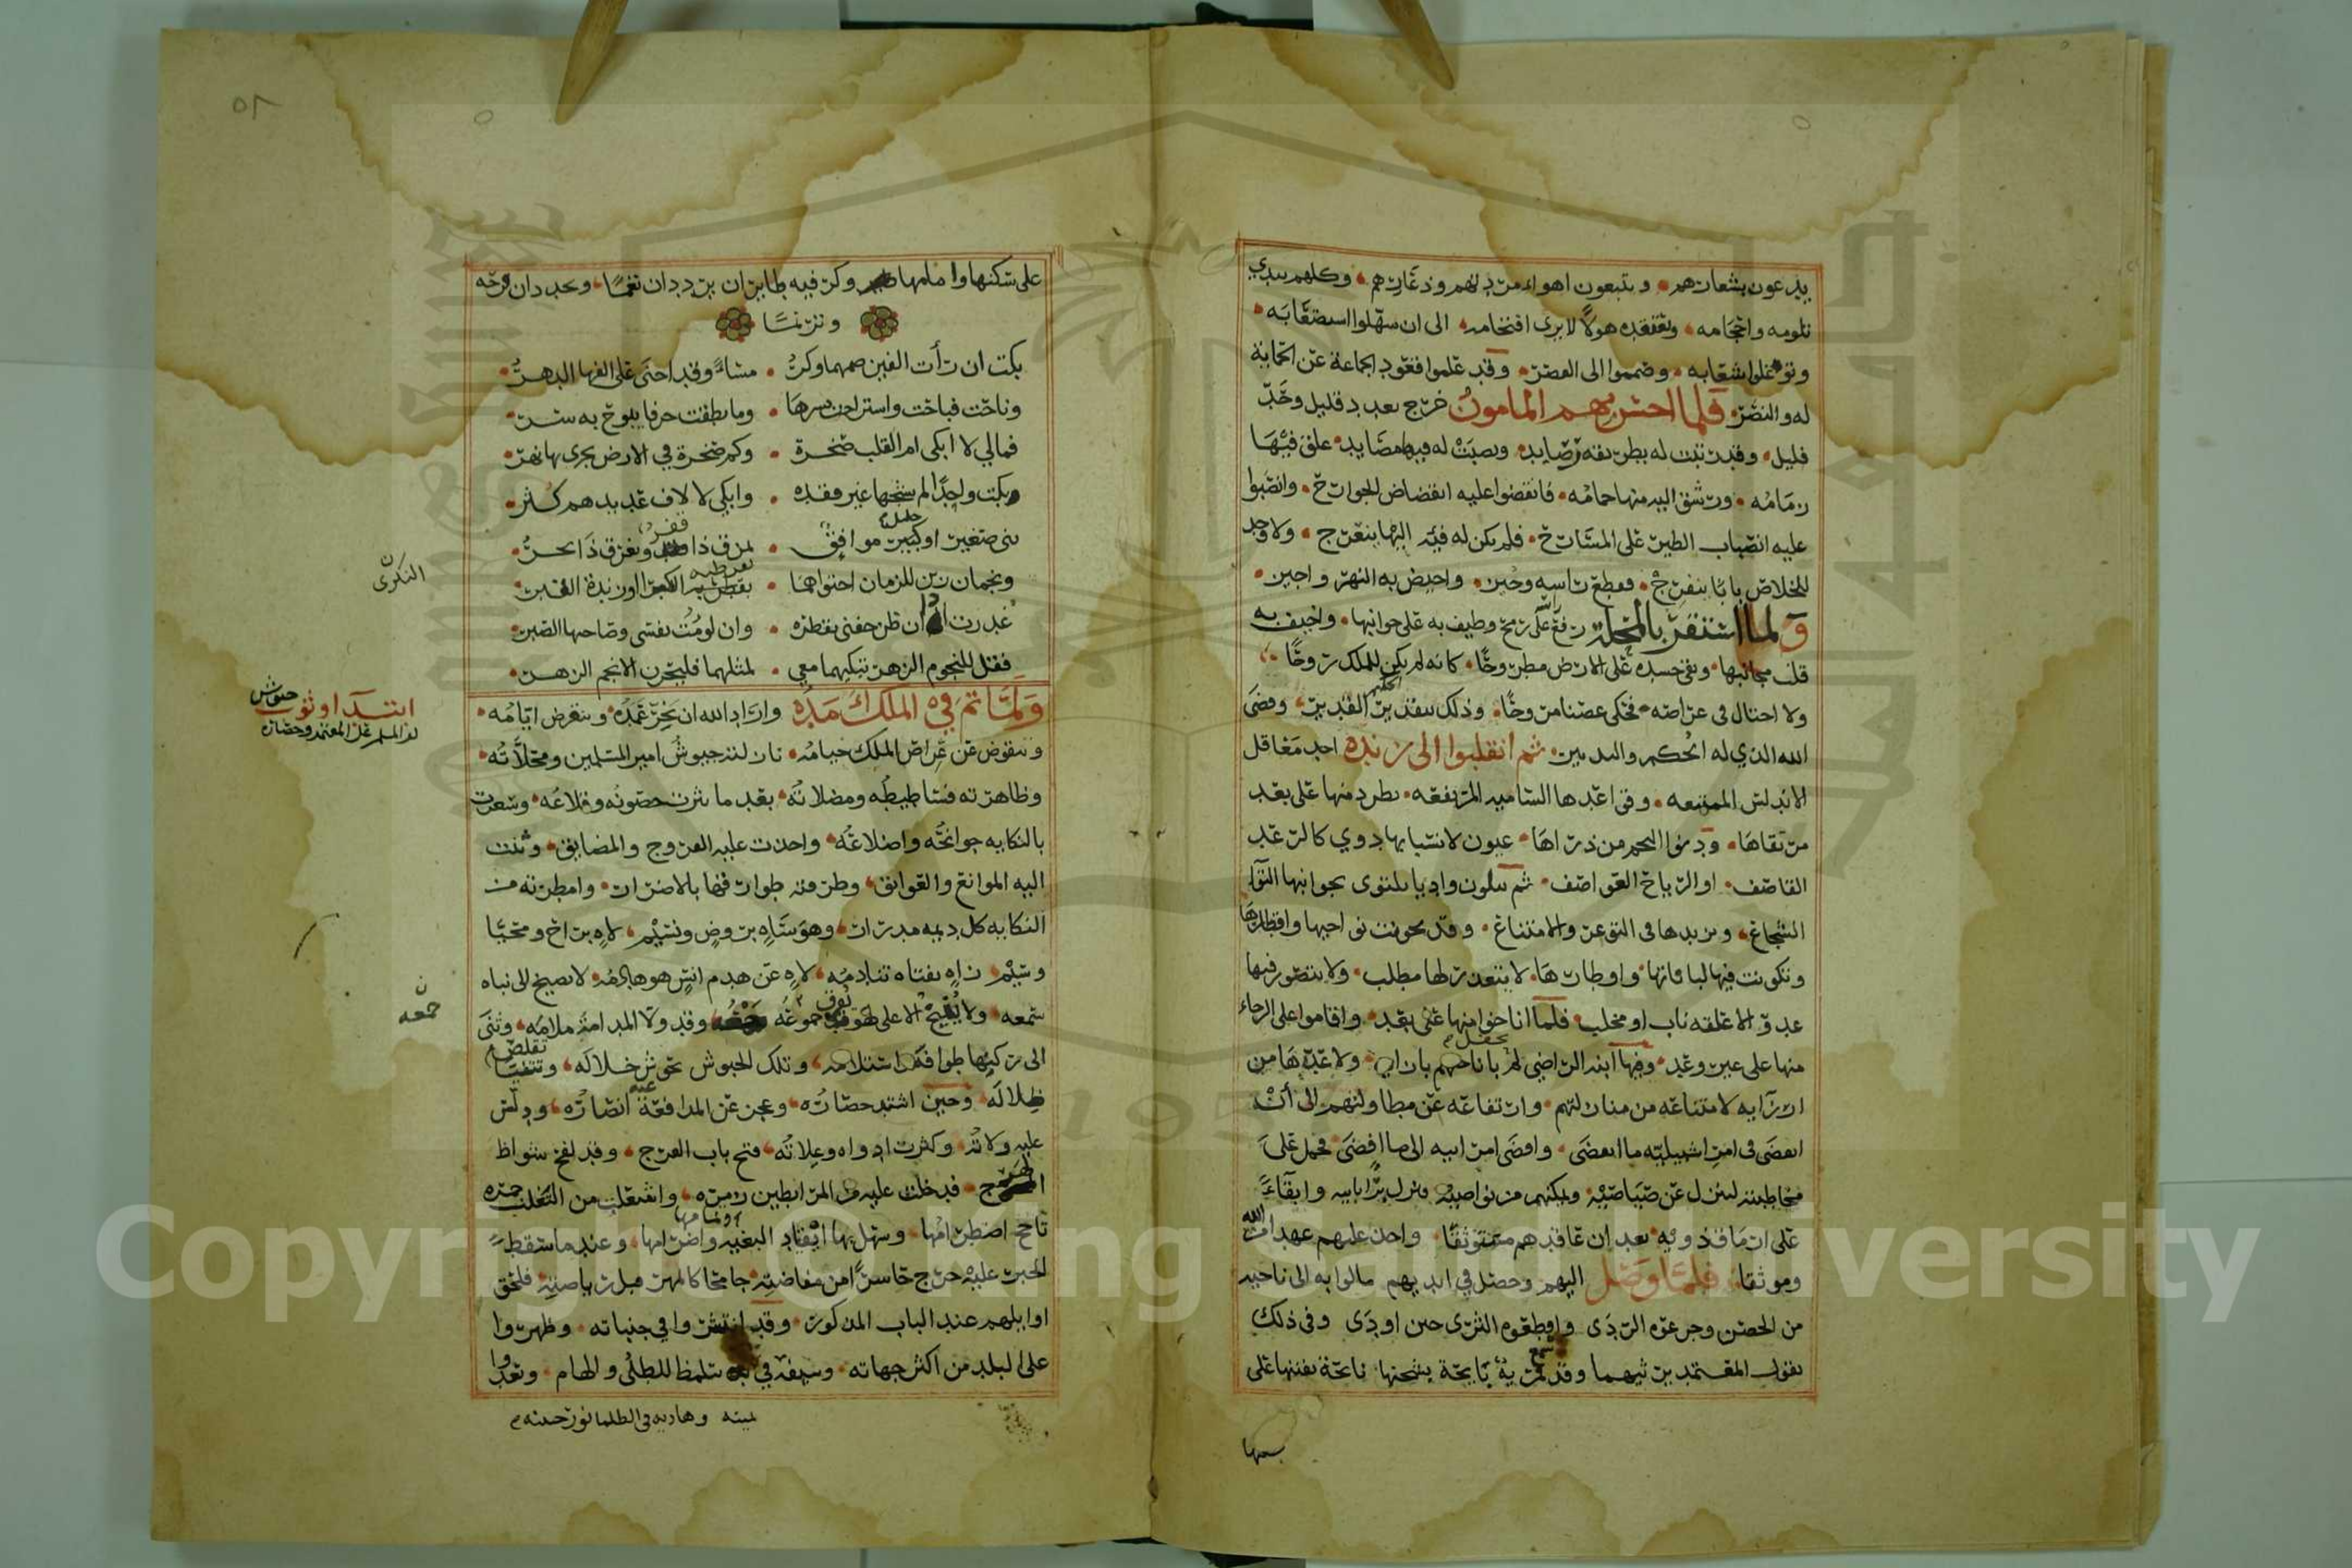 يدرعون بشعارهم وىتبعون اهواء من بدلهم وذعارهم وكلهم يبدي
تلومه واحجامه وىعىعده هولا لا يرى اقتحامه الى ان سهلوا استصعابه
وتوغلوا شعابه وصمموا الى القصر وقد علموا قعود الجماعة عن الحماية
له والنصر فلما احس بهم المامون خرج بعدد قليل وحد
فليل وقد رتبت له بطريقه رصايد ونصبت له فيها مصايد علق فيها
زمامه ورشق اليه منها حمامه فانقضوا عليه انقضاض الجوارح وانصبوا
عليه انصباب الطير على المسارح فلم يكن له فئة اليها ينعرج ولا وجد
للخلاص بابا ينفرج فقطع راسه وحين واخيض به النهر واجين
ولما استقر بالمحلة رفع الراس على رمح وطيف به على جوانبها واخيف به
قلب مجانبها وبقى جسده على الارض مطروحا كانه لم يكن للملك روحا
ولا اختال في عراصه فحكى غصنا مروحا وذلك بتقدير الحكيم القدير وقضى
الله الذي له الحكم والتدبير ثم انقلبوا الى رنده احد معاقل
الاندلس الممتنعه وقواعدها الساميه المرتفعه تطرد منها على بعد
مرتقاها ودنو النجم من ذراها عيون لانسيابها دوي كالرعد
القاصف او الرياح العواصف ثم تتكون واديا يلتوي بجوانبها التوآ
الشجاع ويزيدها في التوعر والامتناع وقد تجونت نواحيها واقطارها
وتكونت فيها لباناتها واوطارها لا يتعذر لها مطلب ولا يتصور فيها
عدو الا علقه ناب او مخلب فلما اناخوا منها على بعد واقاموا على الرجاء
منها على غير وعد وفيها ابنه الراضي لم يحفل باناختهم بازايه ولا عدها من
ارزآيه لامتناعه من منازلتهم وارتفاعه عن مطاولتهم الى أن
انقضى في امر اشبيلية ما انقضى وافضى امر ابيه الى ما افضى فحمل على
مخاطبته لينزل عن صياصيه ويمكنهم من نواصيه فنزل برا بابيه وابقآء
على ارماق ذويه بعد ان عاقدهم مستوثقا واخذ عليهم عهد الله
وموثقا فلما وصل اليهم وحصل في ايديهم مالوا به الى ناحيه
من الحصن وجرعوه الردى واقطعوه الثرى حين اودى وفي ذلك
يقول المعتمد يرثيهما وقد سمع قمرية نايحة بشجنها ناىحة بفننها على
سكنها
على سكنها وامامها وكر فيه طايران يرددان نغما ويغردان ترحه
وترنما
بكت ان رأت الفين ضمهما وكر مساء وقد اخنى على الفها الدهر
وناحت فباحت واستراحت بسرها وما نطقت حرفا يبوح به سر
فمالي لا ابكي ام القلب صخرة وكم صخرة في الارض يجري بها نهر
وبكت واحدا لم يشجها غير فقده وابكي لالاف عديدهم كثر
بني صغير او خليل موافق يمزق ذا قفر ويغرق ذا بحر
ونجمان زين للزمان احتواهما بقرطبة النكداء او رندة القبر
غدرت اذا ان ضن جفني بقطره وان لومت نفسي وصاحبها الصبر
فقل للنجوم الزهر تبكيهما معي لمثلهما فلتحزن الانجم الزهر
ولما تم في الملك امده واراد الله ان تخر عمده وتنقرض ايامه
وتتقوض عن عراص الملك خيامه نازلته جيوش امير المسلمين ومحلاته
وظاهرته فساطيطه ومضلاته بعد ما نثرت حصونه وقلاعه وسعرت
بالنكايه جوانحه واضلاعه واخذت عليه الفروج والمضايق وثنت
اليه الموانع والعوايق وطرقته طوارقها بالاضرار وامطرته من
النكايه كل ديمه مدرار وهو ساه بروض ونسيم لاه براح ومحيا
وسيم زاه بفتاه تنادمه لاه عن هدم انس هو هادمه لا يصيخ الى نباه
سمعه ولا ينيخ الا على لهو جموعه وقد ولى المدامة ملامه وثنى
الى ركنها طوافه واستلامه وتلك الجيوش تجوس خلاله وتقلص
ظلاله وحين اشتد حصاره وعجز عن المدافعة انصاره ودلس
عليه ولاته وكثرت ادواه وعلاته فتح باب الفرج وقد لفح شواظ
الهرج فدخلت عليه من المرابطين زمره واشتعلت من التغلب جمره
تاجج اضطرامها وسهل بها ايقاد البغيه واضرامها وعندما سقط
الخبر عليه خرج حاسرا من مفاضته جامحا كالمهر قبل رياضته فلحق
اوايلهم عند الباب المذكور وقد انتشروا في جنباته وظهروا
على البلد من اكثر جهاته وسيفه في يده يتلمظ للطلى والهام ويعد
يمينه وهاديه في الظلما نور جبينه
ابتدا وثوب جيوش
امير المسلمين على المعتمد وحصاره
ن
النكرى
ن
جمعه
Copyright © King Saud University
1957